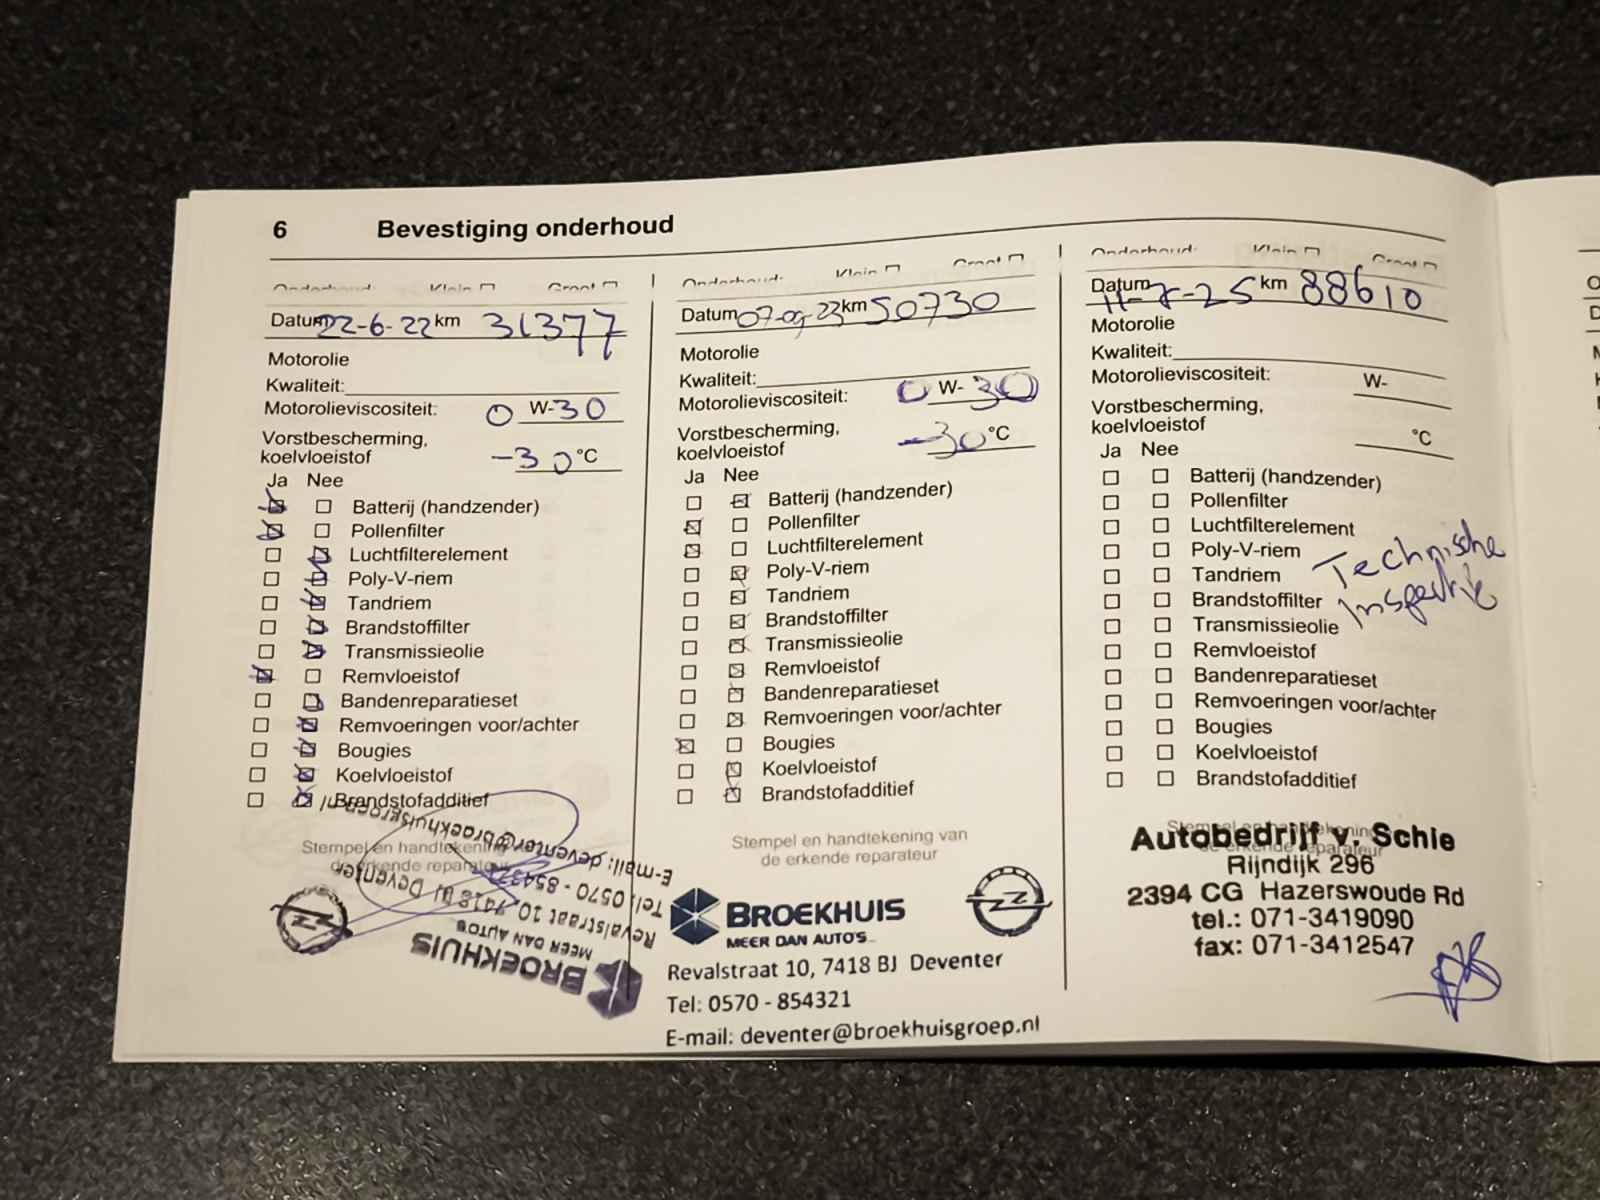 6 Bevestiging onderhoud
Onderhoud: Klein Groot
Datum 22-6-22 km 31377
Motorolie
Kwaliteit:
Motorolieviscositeit: 0 W-30
Vorstbescherming,
koelvloeistof -30 °C
Ja Nee
Batterij (handzender)
Pollenfilter
Luchtfilterelement
Poly-V-riem
Tandriem
Brandstoffilter
Transmissieolie
Remvloeistof
Bandenreparatieset
Remvoeringen voor/achter
Bougies
Koelvloeistof
Brandstofadditief
Stempel en handtekening van
de erkende reparateur
BROEKHUIS
MEER DAN AUTO'S
Revalstraat 10, 7418 BJ Deventer
Tel: 0570 - 854321
E-mail: deventer@broekhuisgroep.nl
Onderhoud: Klein Groot
Datum 07-09-23 km 50730
Motorolie
Kwaliteit:
Motorolieviscositeit: 0 W-30
Vorstbescherming,
koelvloeistof -30 °C
Ja Nee
Batterij (handzender)
Pollenfilter
Luchtfilterelement
Poly-V-riem
Tandriem
Brandstoffilter
Transmissieolie
Remvloeistof
Bandenreparatieset
Remvoeringen voor/achter
Bougies
Koelvloeistof
Brandstofadditief
Stempel en handtekening van
de erkende reparateur
BROEKHUIS
MEER DAN AUTO'S
Revalstraat 10, 7418 BJ Deventer
Tel: 0570 - 854321
E-mail: deventer@broekhuisgroep.nl
Onderhoud: Klein Groot
Datum 11-7-25 km 88610
Motorolie
Kwaliteit:
Motorolieviscositeit: W-
Vorstbescherming,
koelvloeistof °C
Ja Nee
Batterij (handzender)
Pollenfilter
Luchtfilterelement
Poly-V-riem
Tandriem
Brandstoffilter
Transmissieolie
Remvloeistof
Bandenreparatieset
Remvoeringen voor/achter
Bougies
Koelvloeistof
Brandstofadditief
Technische
inspectie
Stempel en handtekening
de erkende reparateur
Autobedrijf v. Schie
Rijndijk 296
2394 CG Hazerswoude Rd
tel.: 071-3419090
fax: 071-3412547